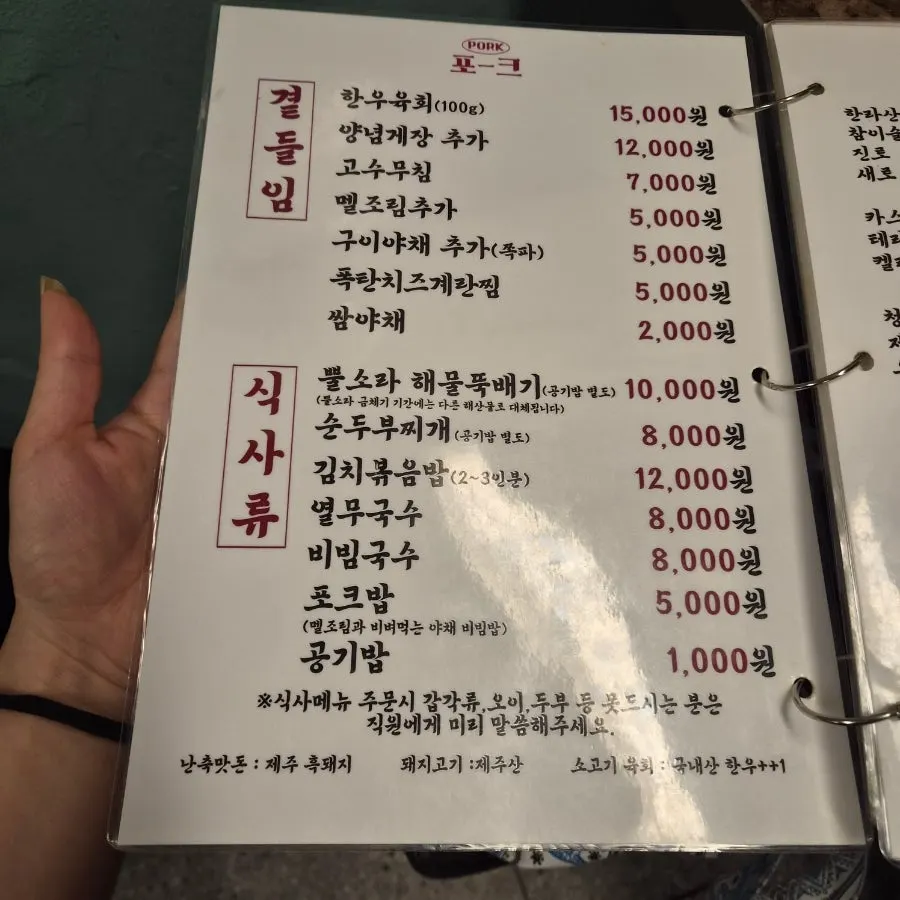 PORK
포-크
곁들임
한우육회(100g) 15,000원
양념게장 추가 12,000원
고수무침 7,000원
멜조림추가 5,000원
구이야채 추가(쪽파) 5,000원
폭탄치즈계란찜 5,000원
쌈야채 2,000원
식사류
뿔소라 해물뚝배기(공기밥 별도) 10,000원
(뿔소라 금체기 기간에는 다른 해산물로 대체됩니다)
순두부찌개(공기밥 별도) 8,000원
김치볶음밥(2~3인분) 12,000원
열무국수 8,000원
비빔국수 8,000원
포크밥 5,000원
(멜조림과 비벼먹는 야채 비빔밥)
공기밥 1,000원
※식사메뉴 주문시 갑각류,오이,두부 등 못드시는 분은
직원에게 미리 말씀해주세요.
난축맛돈 : 제주 흑돼지 돼지고기 :제주산 소고기 육회 : 국내산 한우++1
한라산
참이슬
진로
새로
카스
테라
켈
청